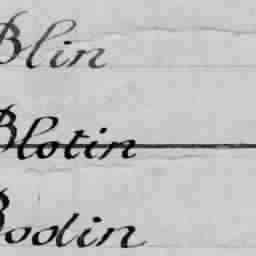 Blin
Blotin
Bodin